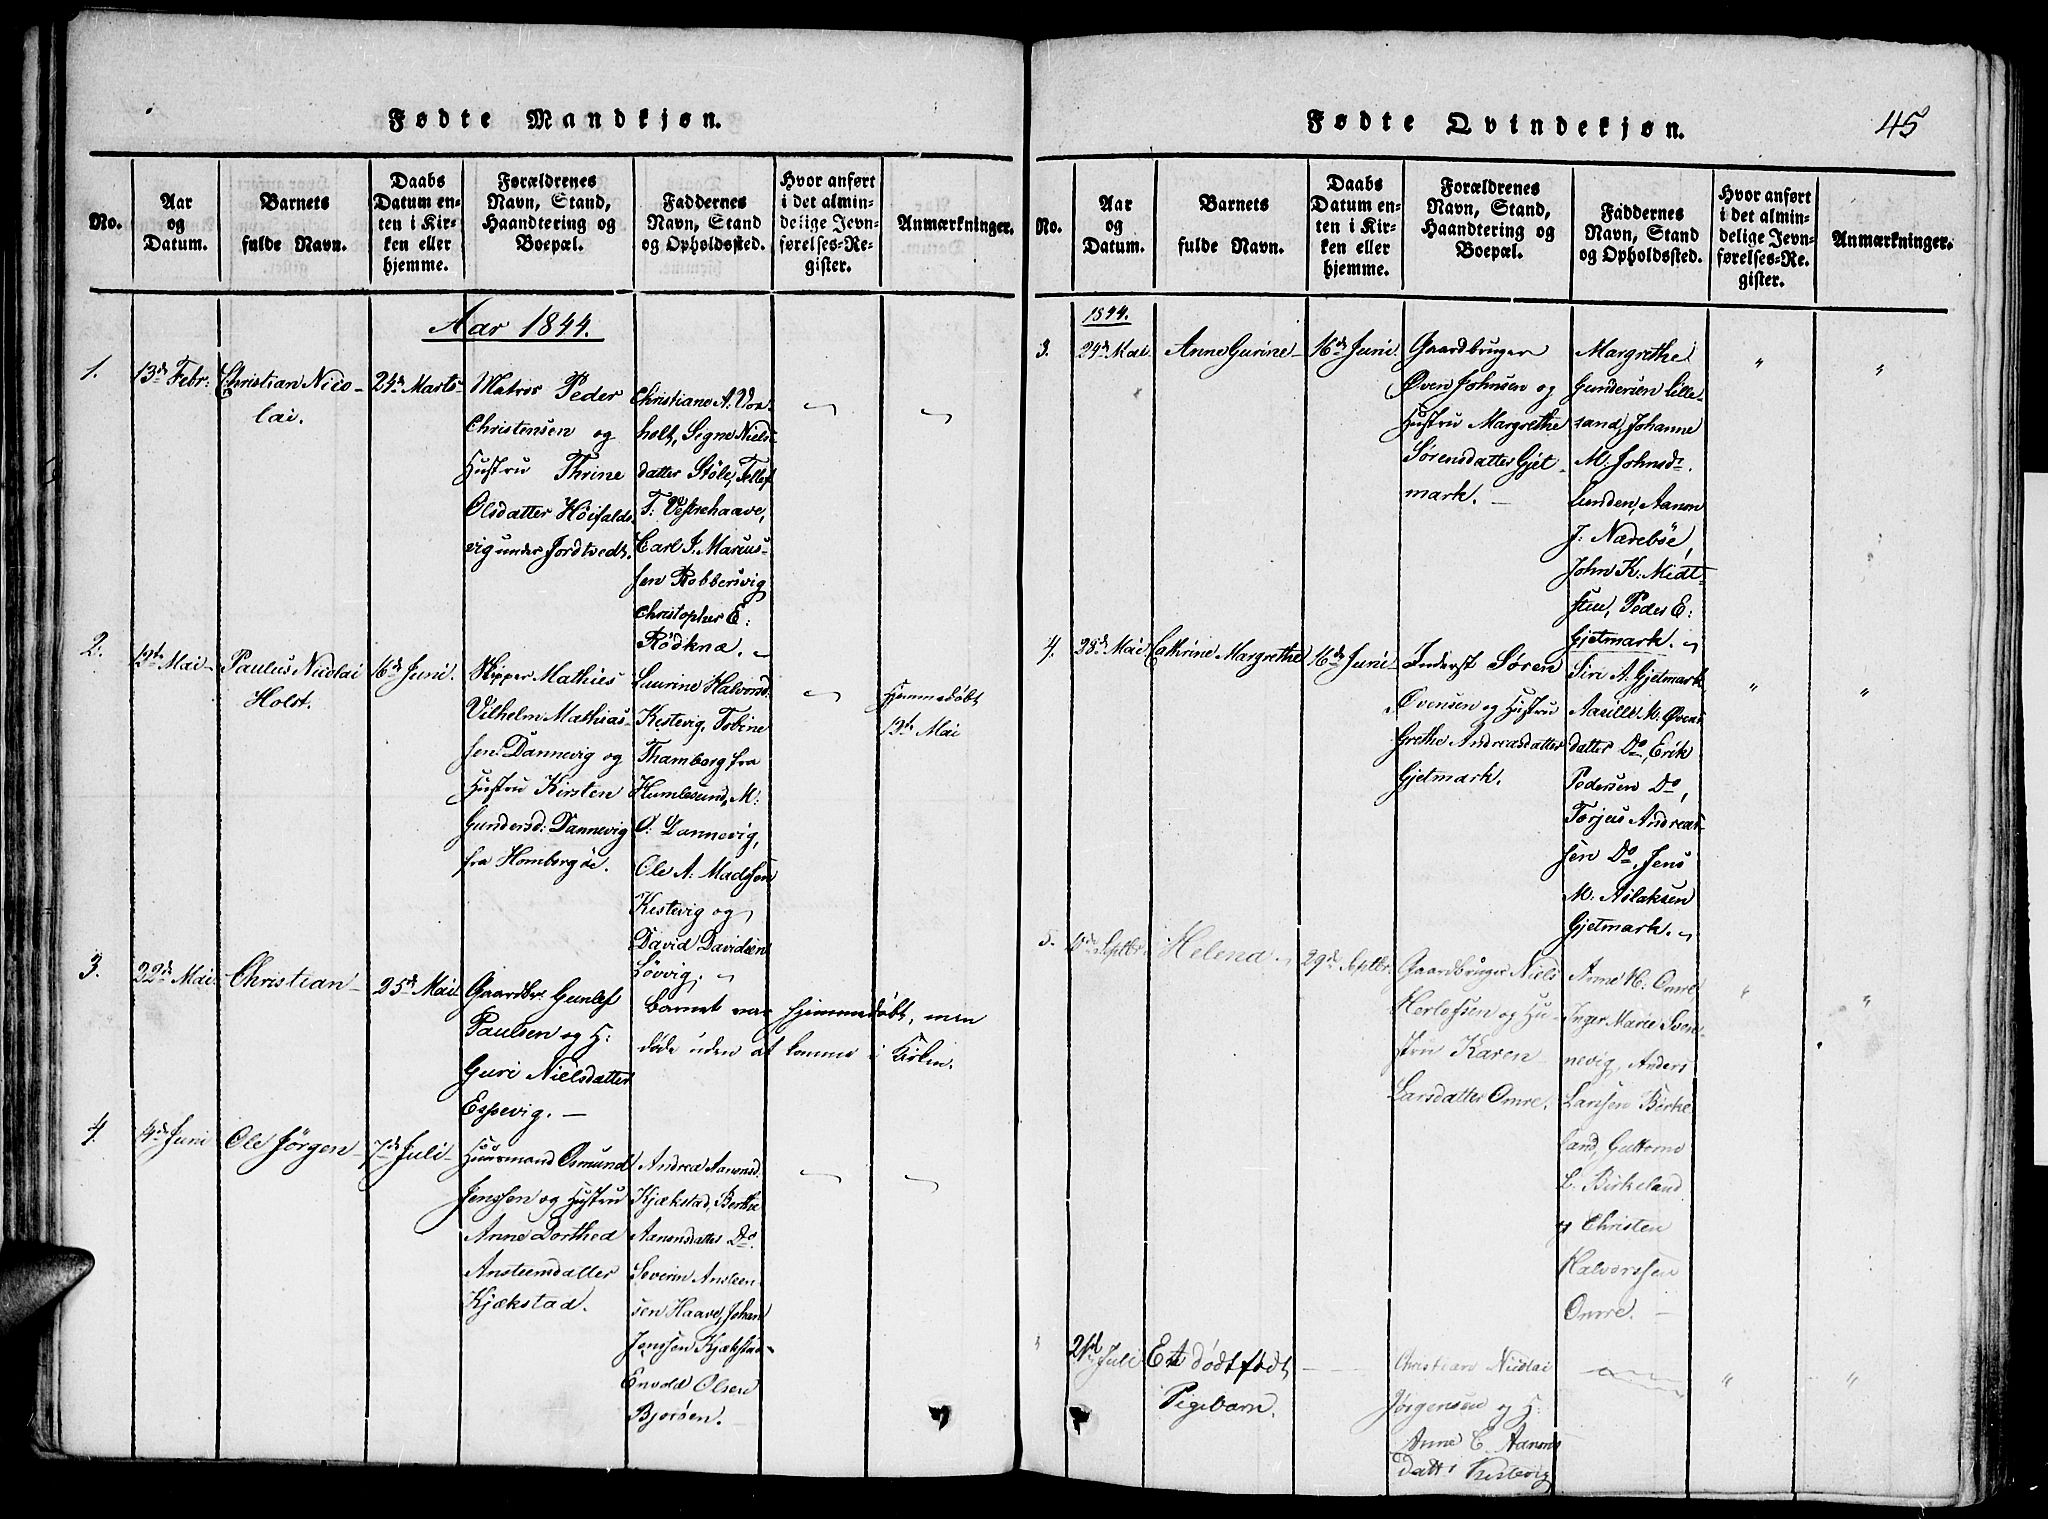 Fødte Mandkjøn.
No.
Aar
og
Datum.
Barnets
fulde Navn.
Daabs
Datum en-
ten i Kir-
ken eller
hjemme.
Forældrenes
Navn, Stand,
Haandtering og
Boepæl.
Faddernes
Navn, Stand
og Opholdssted.
Hvor anført
i det almin-
delige Jevn-
førelses-Re-
gister.
Anmærkninger.
Aar 1844.
1.
13de Febr.
Christian Nico-
lai.
24de Marts
Matros Peder
Christensen og
Hustru Thrine
Olsdatter Höifalds-
vig under Jordtvedt.
Christiane A. Vor-
holt, Segne Niels-
datter Stöle, Tellef
T: Vestrehaave,
Carl J. Marcus-
sen Robbersvig
Christopher E:
Rödknæ.
2.
13de Mai
Paulus Nicolai
Holst.
16de Juni.
Skipper Mathies
Vilhelm Mathias-
sen Dannevig og
Hustru Kirsten
Gundersd: Dannevig
fra Homborgöe.
Laurine Halvorsd.
Kestevig, Tobine
Thamborg fra
Humlesund, M:
O: Dannevig,
Ole A: Madssen
Kestevig og
David Davidsen
Lövvig.
Hjemmedöbt
13de Mai
3.
22de Mai
Christian
25de Mai
Gaardbr. Gunlef
Paulsen og H:
Guri Nielsdatter
Espevig. —
Barnet var hjemmedöbt, men
döde uden at komme i Kirken.
4.
4de Juni
Ole Jörgen
7de Juli
Huusmand Osmund
Jenssen og Hustru
Anne Dorthea
Ansteensdatter
Kjækstad.
Andrea Aanonsd.
Kjækstad, Berthe
Aanonsdatter Do.
Severin Ansteen-
sen Haave, Johan
Jenssen Kjækstad
Envold Olsen
Bjoröen.
Fødte Qvindekjøn.
45
No.
Aar
og
Datum.
Barnets
fulde Navn.
Daabs
Datum en-
ten i Kir-
ken eller
hjemme.
Forældrenes
Navn, Stand,
Haandtering og
Boepæl.
Faddernes
Navn, Stand
og Opholdssted.
Hvor anført
i det almin-
delige Jevn-
førelses-Re-
gister.
Anmærkninger.
1844.
3.
24de Mai
Anne Gurine
16de Juni
Gaardbruger
Öven Johnsen og
Hustru Margrethe
Sörensdatter Gjet-
mark. —
Margrethe
Gundersen Lille-
sand, Johanne
M. Johnsdr.
Lunden, Aanon
J: Nædeböe,
John K: Midt-
steu, Peder E:
Gjetmark.
4.
28de Mai
Cathrine Margrethe
16de Juni
Inderst Sören
Övensen og Hustru
Grethe Andreasdatter
Gjetmark.
Siri A: Gjetmark
Aasille M. Övens-
datter Do, Erik
Pedersen Do,
Torjus Andreas-
sen Do, Jens
M. Aslaksen
Gjetmark.
5.
Septbr.
Helena
29de Septbr.
Gaardbruger Niels
Herlofsen og Hu-
stru Karen
Larsdatter Omre.
Anne H: Omre,
Inger Marie Sven-
nevig, Anders
Larssen Birke-
land, Guttorm
L. Birkeland
og Christen
Halvorssen
Omre. —
21de Juli
Et dödtfödt
Pigebarn.
Christian Nicolai
Jörgensen og H:
Anne C. Aanons
datt: Kestevig